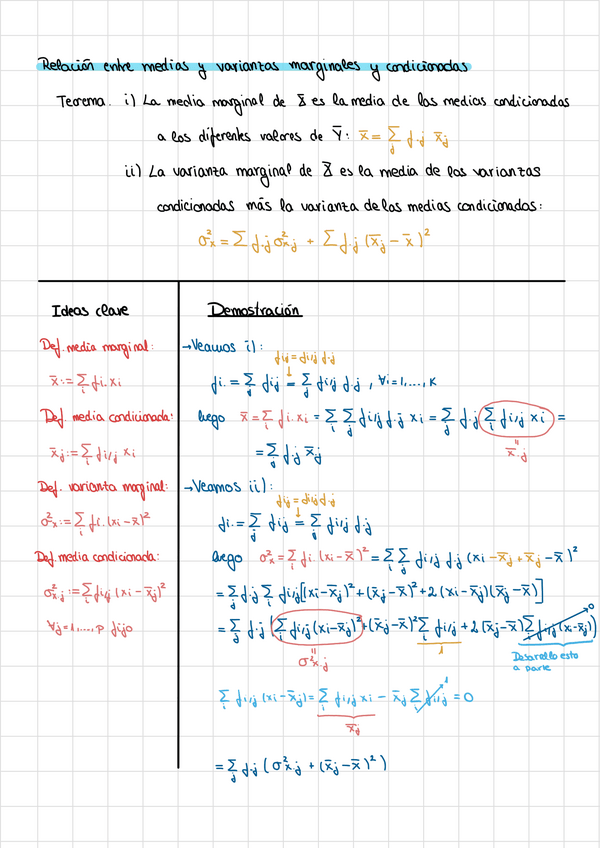 Relación entre medias y varianzas marginales y condicionadas
Teorema. i) La media marginal de X es la media de las medias condicionadas
a los diferentes valores de Y: x̄ = Σ_j f.j x̄_j
ii) La varianza marginal de X es la media de las varianzas
condicionadas más la varianza de las medias condicionadas:
σ²_x = Σ f.j σ²_x,j + Σ f.j (x̄_j − x̄)²
Ideas clave
Def. media marginal:
x̄ := Σ_i fi. xi
Def. media condicionada:
x̄_j := Σ_i fi/j xi
Def. varianta marginal:
σ²_x := Σ_i fi. (xi − x̄)²
Def. media condicionada:
σ²_x,j := Σ_i fi/j (xi − x̄_j)²
∀j=1,...,p fijo
Demostración
→Veamos i):
fij = fi/j f.j
↓
fi. = Σ_j fij = Σ_j fi/j f.j , ∀i=1,...,K
luego x̄ = Σ_i fi. xi = Σ_i Σ_j fi/j f.j xi = Σ_j f.j Σ_i fi/j xi =
x̄.j
= Σ_j f.j x̄_j
→Veamos ii):
fij = fi/j f.j
↓
fi. = Σ_j fij = Σ_j fi/j f.j
luego σ²_x = Σ_i fi. (xi − x̄)² = Σ_i Σ_j fi/j f.j (xi − x̄_j + x̄_j − x̄)²
= Σ_j f.j Σ_i fi/j [(xi − x̄_j)² + (x̄_j − x̄)² + 2 (xi − x̄_j)(x̄_j − x̄)]
= Σ_j f.j (Σ_i fi/j (xi − x̄_j)² + (x̄_j − x̄)² Σ_i fi/j + 2 (x̄_j − x̄) Σ_i fi/j (xi − x̄_j)) 0
σ²x.j 1 Desarollo esto
a parte
Σ_i fi/j (xi − x̄_j) = Σ_i fi/j xi − x̄_j Σ_i fi/j 1 = 0
x̄_j
= Σ_j f.j (σ²x.j + (x̄_j − x̄)²)